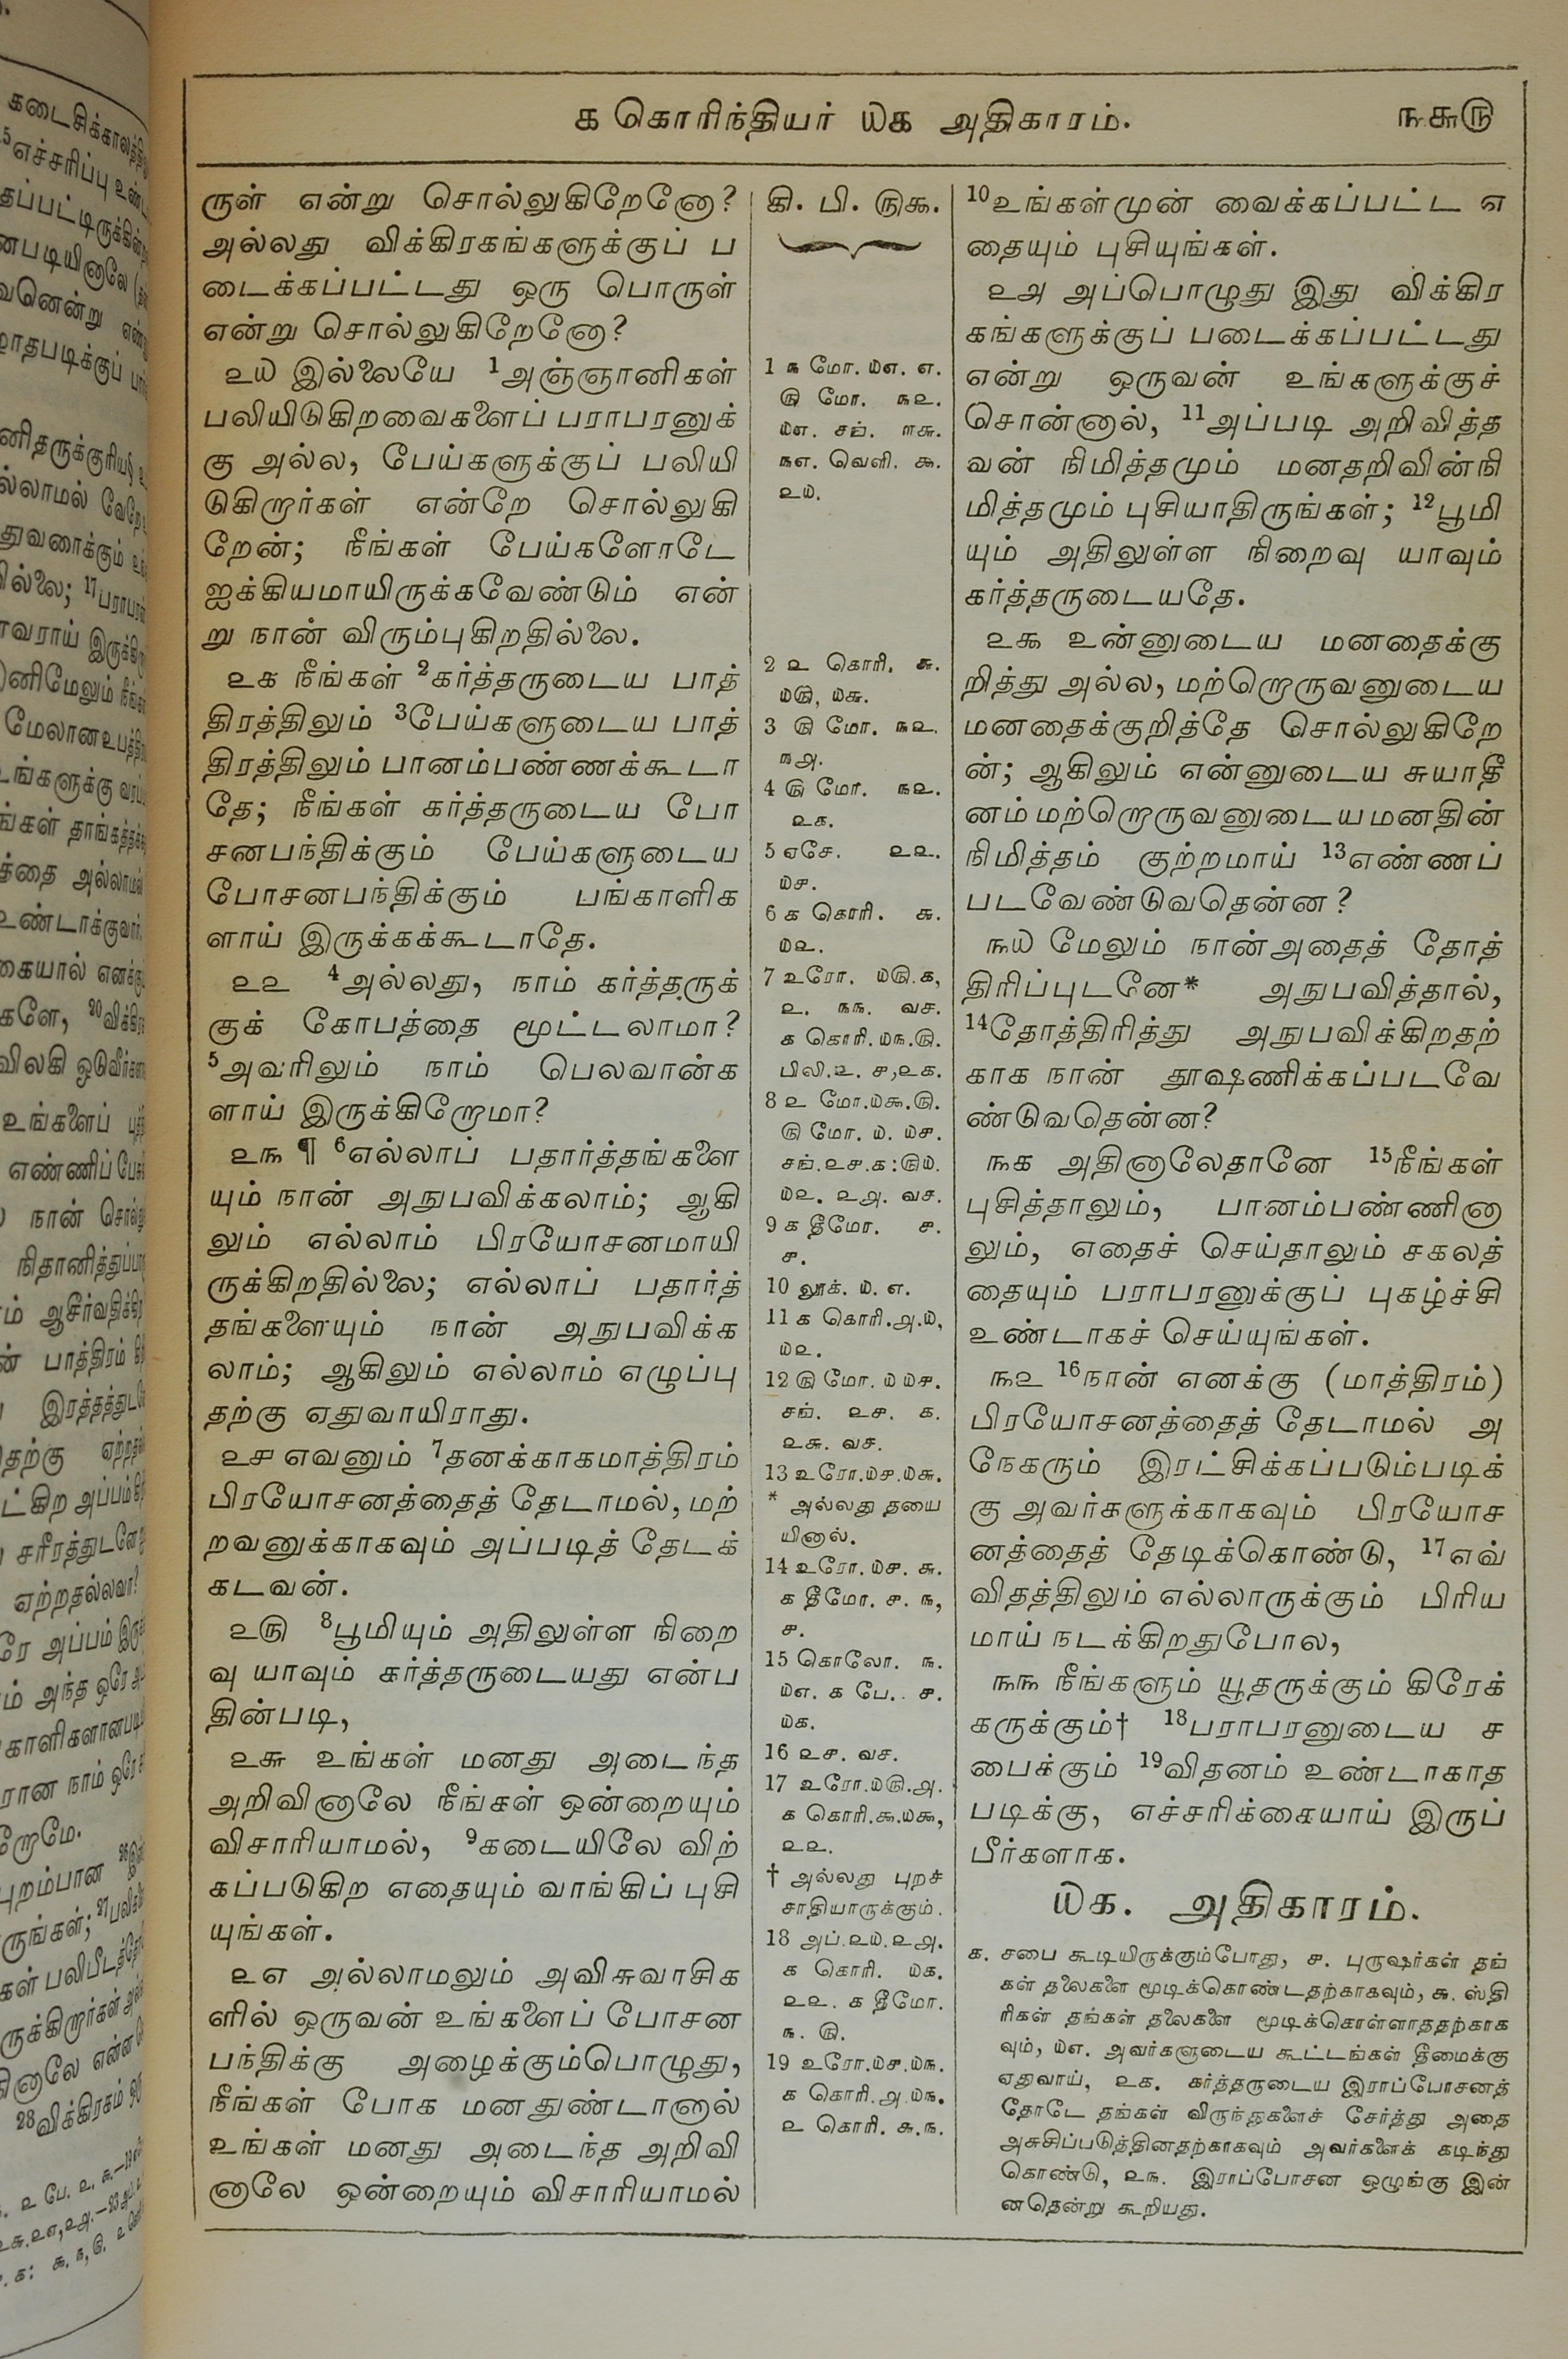 க கொரிந்தியர் ௰க அதிகாரம். ௩௬௫
ருள் என்று சொல்லுகிறேனோ?
அல்லது விக்கிரகங்களுக்குப் ப
டைக்கப்பட்டது ஒரு பொருள்
என்று சொல்லுகிறேனோ?
௨௰ இல்லையே 1அஞ்ஞானிகள்
பலியிடுகிறவைகளைப் பராபரனுக்
கு அல்ல, பேய்களுக்குப் பலியி
டுகிறார்கள் என்றே சொல்லுகி
றேன்; நீங்கள் பேய்களோடே
ஐக்கியமாயிருக்கவேண்டும் என்
று நான் விரும்புகிறதில்லை.
௨௧ நீங்கள் 2கர்த்தருடைய பாத்
திரத்திலும் 3பேய்களுடைய பாத்
திரத்திலும் பானம்பண்ணக்கூடா
தே; நீங்கள் கர்த்தருடைய போ
சனபந்திக்கும் பேய்களுடைய
போசனபந்திக்கும் பங்காளிக
ளாய் இருக்கக்கூடாதே.
௨௨ 4அல்லது, நாம் கர்த்தருக்
குக் கோபத்தை மூட்டலாமா?
5அவரிலும் நாம் பெலவான்க
ளாய் இருக்கிறோமா?
௨௩ ¶ 6எல்லாப் பதார்த்தங்களை
யும் நான் அநுபவிக்கலாம்; ஆகி
லும் எல்லாம் பிரயோசனமாயி
ருக்கிறதில்லை; எல்லாப் பதார்த்
தங்களையும் நான் அநுபவிக்க
லாம்; ஆகிலும் எல்லாம் எழுப்பு
தற்கு ஏதுவாயிராது.
௨௪ எவனும் 7தனக்காகமாத்திரம்
பிரயோசனத்தைத் தேடாமல், மற்
றவனுக்காகவும் அப்படித் தேடக்
கடவன்.
௨௫ 8பூமியும் அதிலுள்ள நிறை
வு யாவும் கர்த்தருடையது என்ப
தின்படி,
௨௬ உங்கள் மனது அடைந்த
அறிவினாலே நீங்கள் ஒன்றையும்
விசாரியாமல், 9கடையிலே விற்
கப்படுகிற எதையும் வாங்கிப் புசி
யுங்கள்.
௨௭ அல்லாமலும் அவிசுவாசிக
ளில் ஒருவன் உங்களைப் போசன
பந்திக்கு அழைக்கும்பொழுது,
நீங்கள் போக மனதுண்டானால்
உங்கள் மனது அடைந்த அறிவி
னாலே ஒன்றையும் விசாரியாமல்
கி. பி. ௫௯.
1 ௩ மோ. ௰௭. ௭.
௫ மோ. ௩௨.
௰௭. சங். ௱௬.
௩௭. வெளி. ௯.
௨௰.
2 ௨ கொரி. ௬.
௰௫, ௰௬.
3 ௫ மோ. ௩௨.
௩௮.
4 ௫ மோ. ௩௨.
௨௧.
5 ஏசே. ௨௨.
௰௪.
6 ௧ கொரி. ௬.
௰௨.
7 உரோ. ௰௫.௧,
௨. ௩௩. வச.
௧ கொரி.௰௩.௫.
பிலி.௨. ௪,௨௧.
8 ௨ மோ.௰௯.௫.
௫ மோ. ௰. ௰௪.
சங்.௨௪.௧:௫௰.
௰௨. ௨௮. வச.
9 ௧ தீமோ. ௪.
௪.
10 லூக். ௰. ௭.
11 ௧ கொரி.௮.௰,
௰௨.
12 ௫ மோ. ௰ ௰௪.
சங். ௨௪. ௧.
௨௬. வச.
13 உரோ.௰௪.௰௬.
* அல்லது தயை
யினால்.
14 உரோ.௰௪. ௬.
௧ தீமோ. ௪. ௩,
௪.
15 கொலோ. ௩.
௰௭. ௧ பே. ௪.
௰௧.
16 ௨௪. வச.
17 உரோ.௰௫.௮.
௧ கொரி.௯.௰௯,
௨௨.
† அல்லது புறச்
சாதியாருக்கும்.
18 அப்.௨௰.௨௮.
௧ கொரி. ௰௧.
௨௨. ௧ தீமோ.
௩. ௫.
19 உரோ.௰௪.௰௩.
௧ கொரி.௮.௰௩.
௨ கொரி. ௬.௩.
10உங்கள்முன் வைக்கப்பட்ட எ
தையும் புசியுங்கள்.
௨௮ அப்பொழுது இது விக்கிர
கங்களுக்குப் படைக்கப்பட்டது
என்று ஒருவன் உங்களுக்குச்
சொன்னால், 11அப்படி அறிவித்த
வன் நிமித்தமும் மனதறிவின்நி
மித்தமும் புசியாதிருங்கள்; 12பூமி
யும் அதிலுள்ள நிறைவு யாவும்
கர்த்தருடையதே.
௨௯ உன்னுடைய மனதைக்கு
றித்து அல்ல, மற்றொருவனுடைய
மனதைக்குறித்தே சொல்லுகிறே
ன்; ஆகிலும் என்னுடைய சுயாதீ
னம் மற்றொருவனுடைய மனதின்
நிமித்தம் குற்றமாய் 13எண்ணப்
படவேண்டுவதென்ன?
௩௰ மேலும் நான்அதைத் தோத்
திரிப்புடனே* அநுபவித்தால்,
14தோத்திரித்து அநுபவிக்கிறதற்
காக நான் தூஷணிக்கப்படவே
ண்டுவதென்ன?
௩௧ அதினாலேதானே 15நீங்கள்
புசித்தாலும், பானம்பண்ணினா
லும், எதைச் செய்தாலும் சகலத்
தையும் பராபரனுக்குப் புகழ்ச்சி
உண்டாகச் செய்யுங்கள்.
௩௨ 16நான் எனக்கு (மாத்திரம்)
பிரயோசனத்தைத் தேடாமல் அ
நேகரும் இரட்சிக்கப்படும்படிக்
கு அவர்களுக்காகவும் பிரயோச
னத்தைத் தேடிக்கொண்டு, 17எவ்
விதத்திலும் எல்லாருக்கும் பிரிய
மாய் நடக்கிறதுபோல,
௩௩ நீங்களும் யூதருக்கும் கிரேக்
கருக்கும்† 18பராபரனுடைய ச
பைக்கும் 19விதனம் உண்டாகாத
படிக்கு, எச்சரிக்கையாய் இருப்
பீர்களாக.
௰௧. அதிகாரம்.
௧. சபை கூடியிருக்கும்போது, ௪. புருஷர்கள் தங்
கள் தலைகளை மூடிக்கொண்டதற்காகவும், ௬. ஸ்தி
ரிகள் தங்கள் தலைகளை மூடிக்கொள்ளாததற்காக
வும், ௰௭. அவர்களுடைய கூட்டங்கள் தீமைக்கு
ஏதுவாய், ௨௧. கர்த்தருடைய இராப்போசனத்
தோடே தங்கள் விருந்துகளைச் சேர்த்து அதை
அசுசிப்படுத்தினதற்காகவும் அவர்களைக் கடிந்து
கொண்டு, ௨௩. இராப்போசன ஒழுங்கு இன்
னதென்று கூறியது.